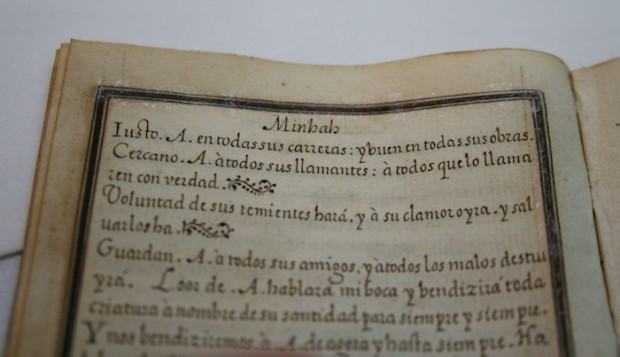 Minhah
Iusto. A. en todas sus carreras: y buen en todas sus obras.
Cercano. A. à todos sus llamantes: à todos que lo llama
ren con verdad.
Voluntad de sus temientes hará, y à su clamor oyra. y sal
uarlosha.
Guardan. A. à todos sus amigos, y à todos los malos destru
yrá. Loor de. A. hablará mi boca y bendizirá toda
criatura à nombre de su santidad para siempre y siempre.
Y nos bendiziremos à. A. de agora y hasta siempre. Ha